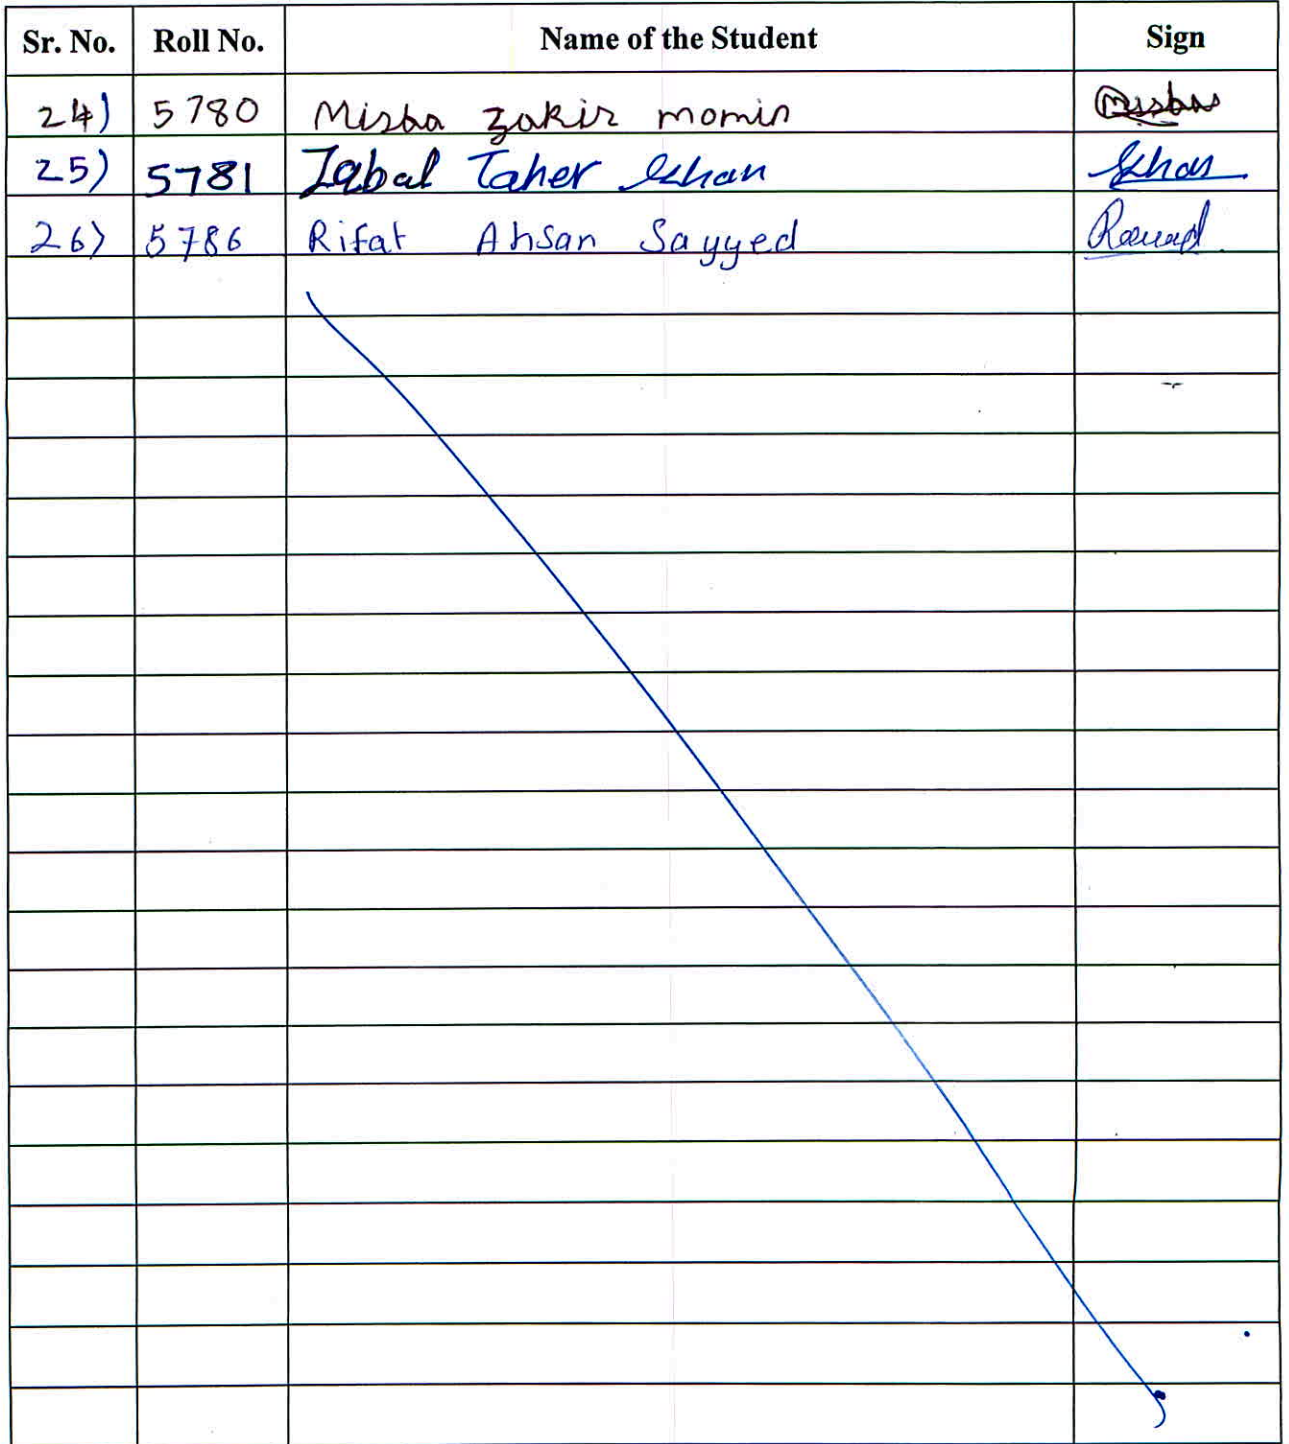 Sr. No. Roll No. Name of the Student Sign
24) 5780 Misba zakir momin Misba
25) 5781 Iqbal Taher Khan Khan
26) 5786 Rifat Ahsan Sayyed